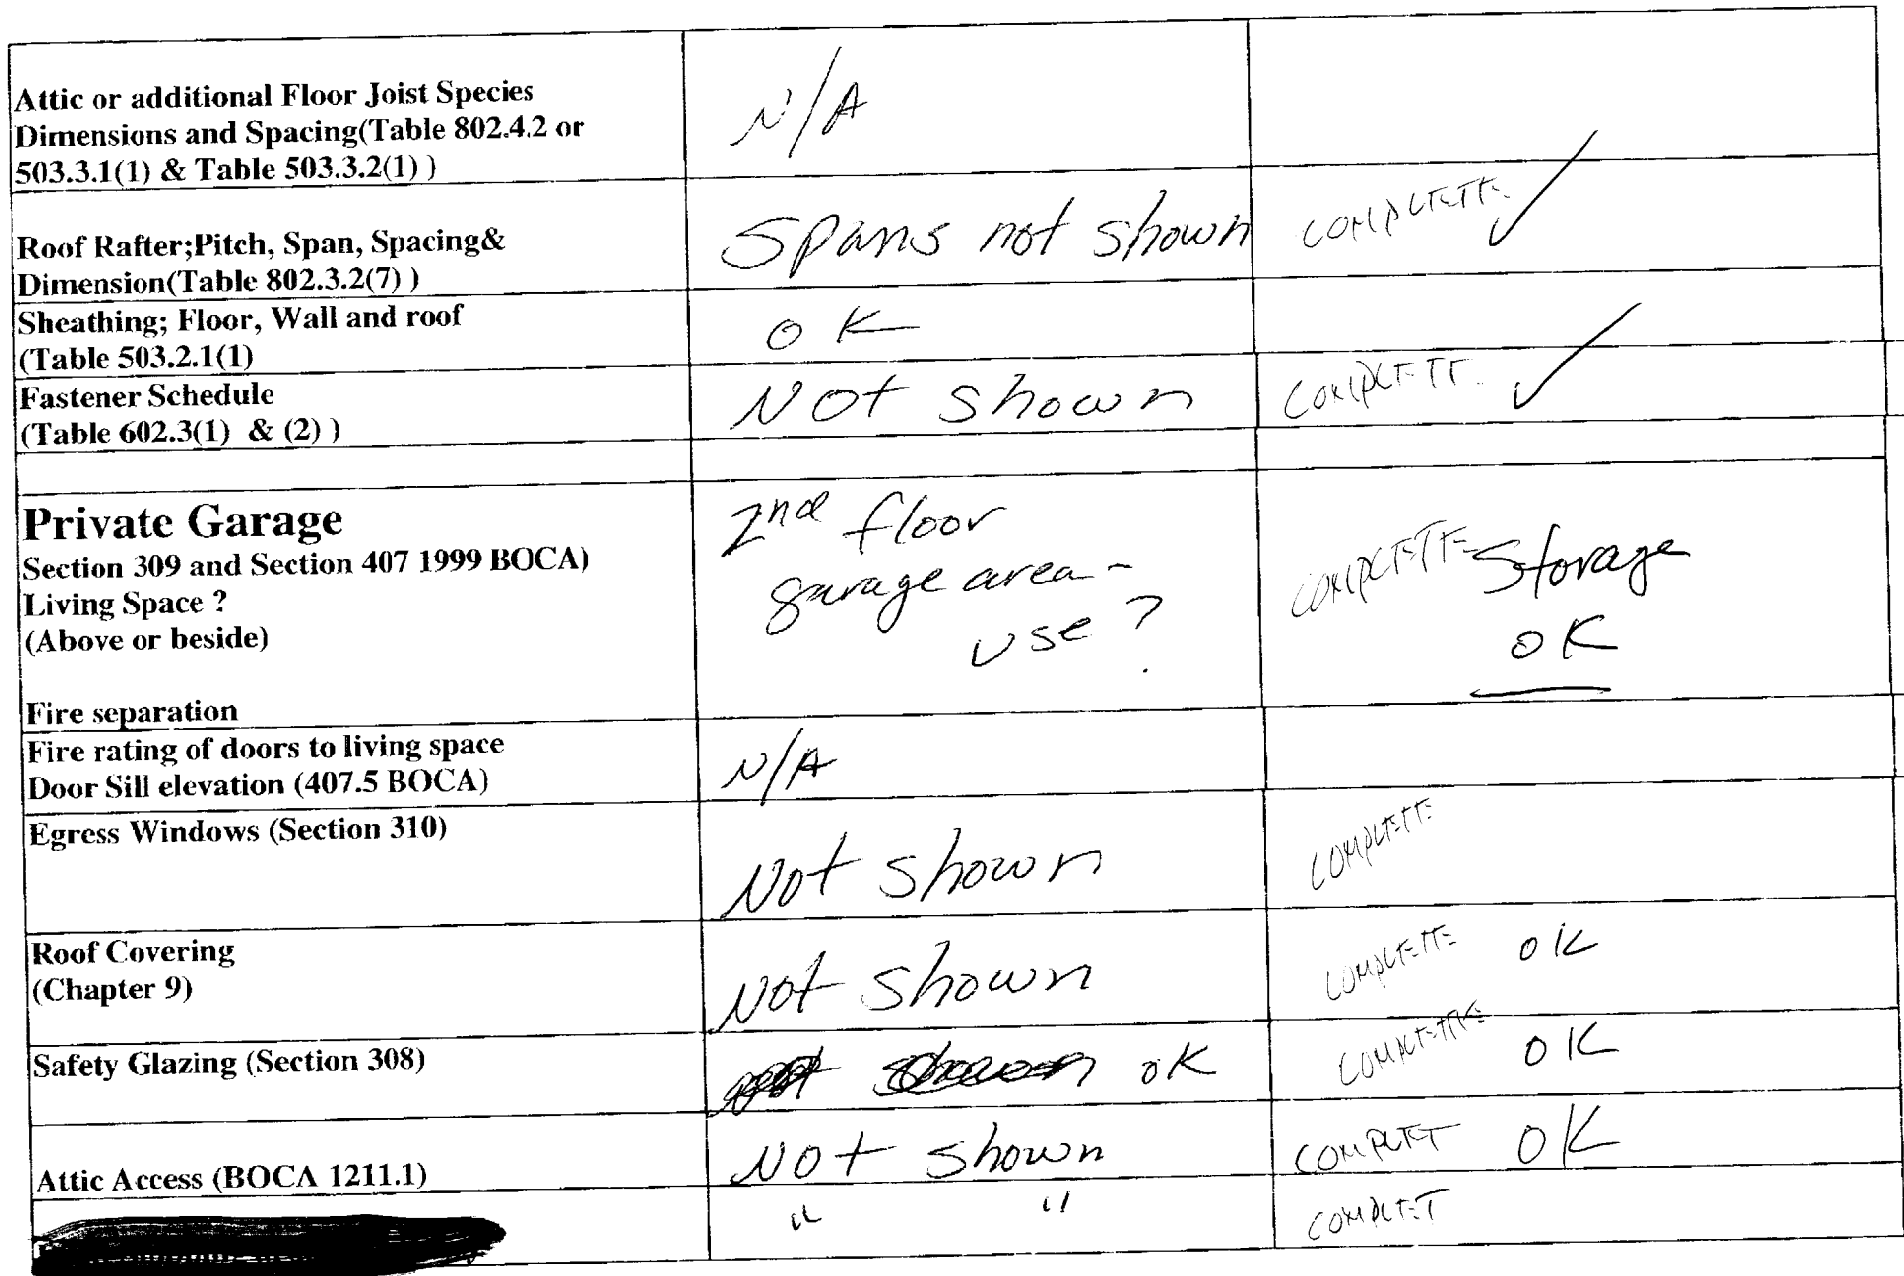 Attic or additional Floor Joist Species
Dimensions and Spacing(Table 802.4.2 or
503.3.1(1) & Table 503.3.2(1) )
N/A
Roof Rafter;Pitch, Span, Spacing&
Dimension(Table 802.3.2(7) )
Spans not shown
COMPLETE ✓
Sheathing; Floor, Wall and roof
(Table 503.2.1(1)
OK
Fastener Schedule
(Table 602.3(1) & (2) )
Not shown
COMPLETE ✓
Private Garage
Section 309 and Section 407 1999 BOCA)
Living Space ?
(Above or beside)
Fire separation
2nd floor
garage area -
use ?
COMPLETE Storage
OK
Fire rating of doors to living space
Door Sill elevation (407.5 BOCA)
N/A
Egress Windows (Section 310)
Not shown
COMPLETE
Roof Covering
(Chapter 9)
Not shown
COMPLETE OK
Safety Glazing (Section 308)
not shown OK
COMPLETE OK
Attic Access (BOCA 1211.1)
Not shown
COMPLET OK
" "
COMPLET